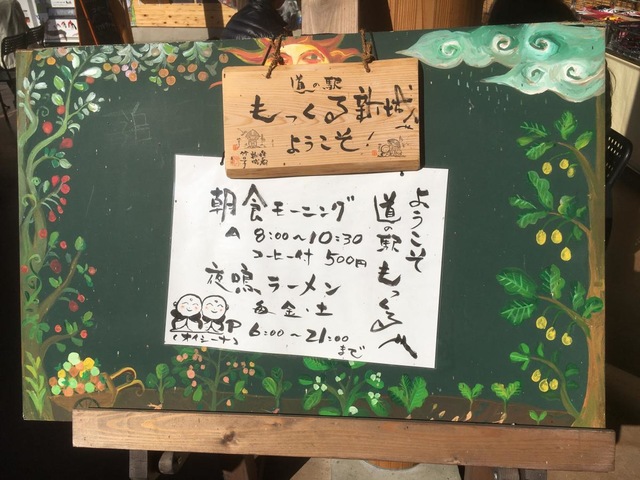 道の駅
もっくる新城へ
ようこそ!
ようこそ
道の駅
もっくるへ
朝食モーニング
A 8:00〜10:30
コーヒー付 500円
夜鳴ラーメン
毎 金・土
P 6:00〜21:00
まで